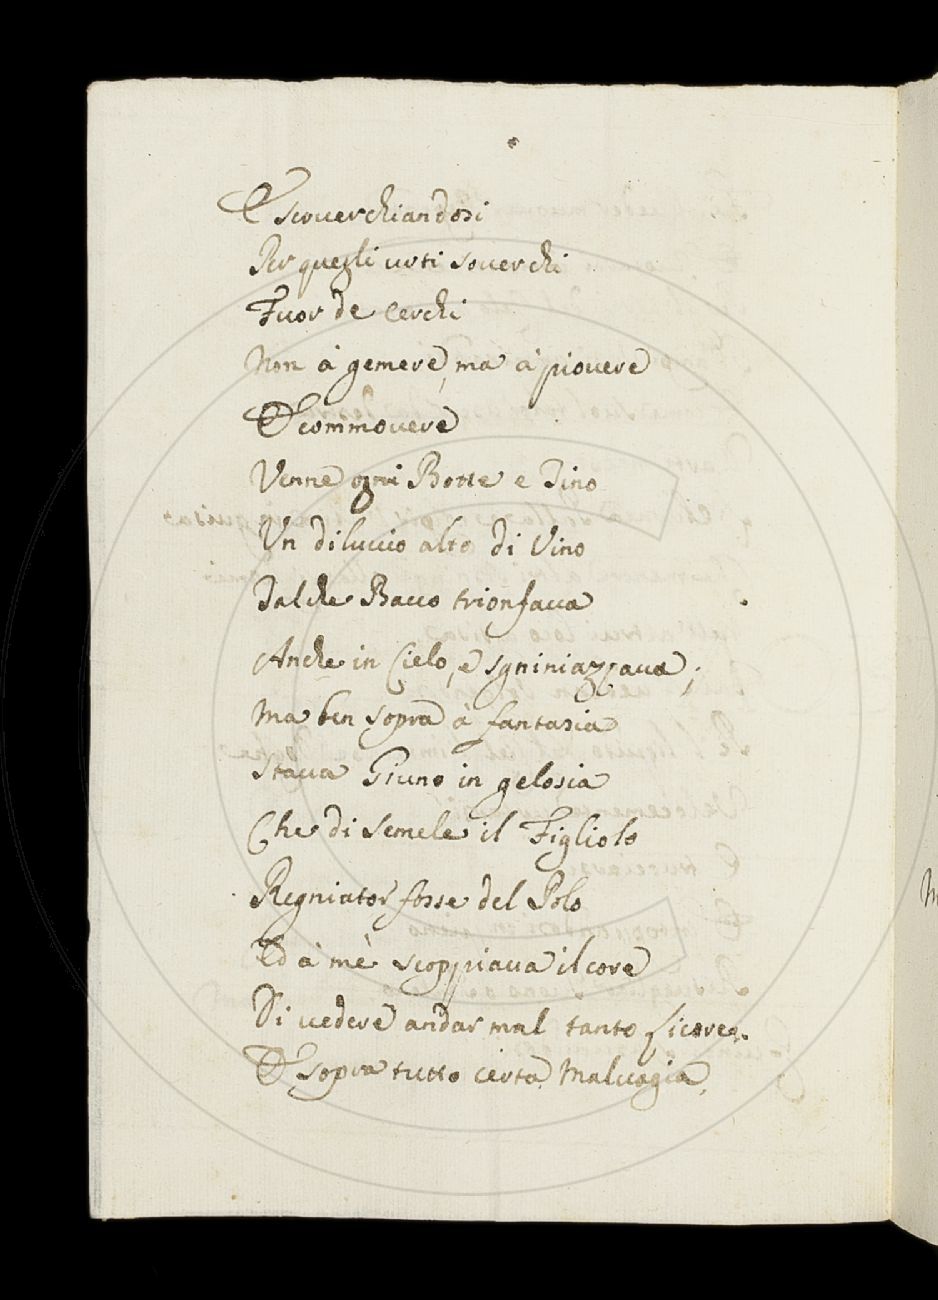 E scouerchiandosi
Per quegli urti souerchi
Fuor de cerchi
Non à gemere, ma à piouere
E commouere
Venne ogni Botte e Tino
Un diluuio alto di Vino
Talche Bacco trionfaua
Anche in Cielo, e sgniniazzaua;
Ma ben sopra à fantasia
Staua Giuno in gelosia
Che di Semele il Figliolo
Regniator fosse del Polo
Ed à mè scoppiaua il core
Di uedere andar mal tanto licore.
E sopra tutto certa Maluagia,